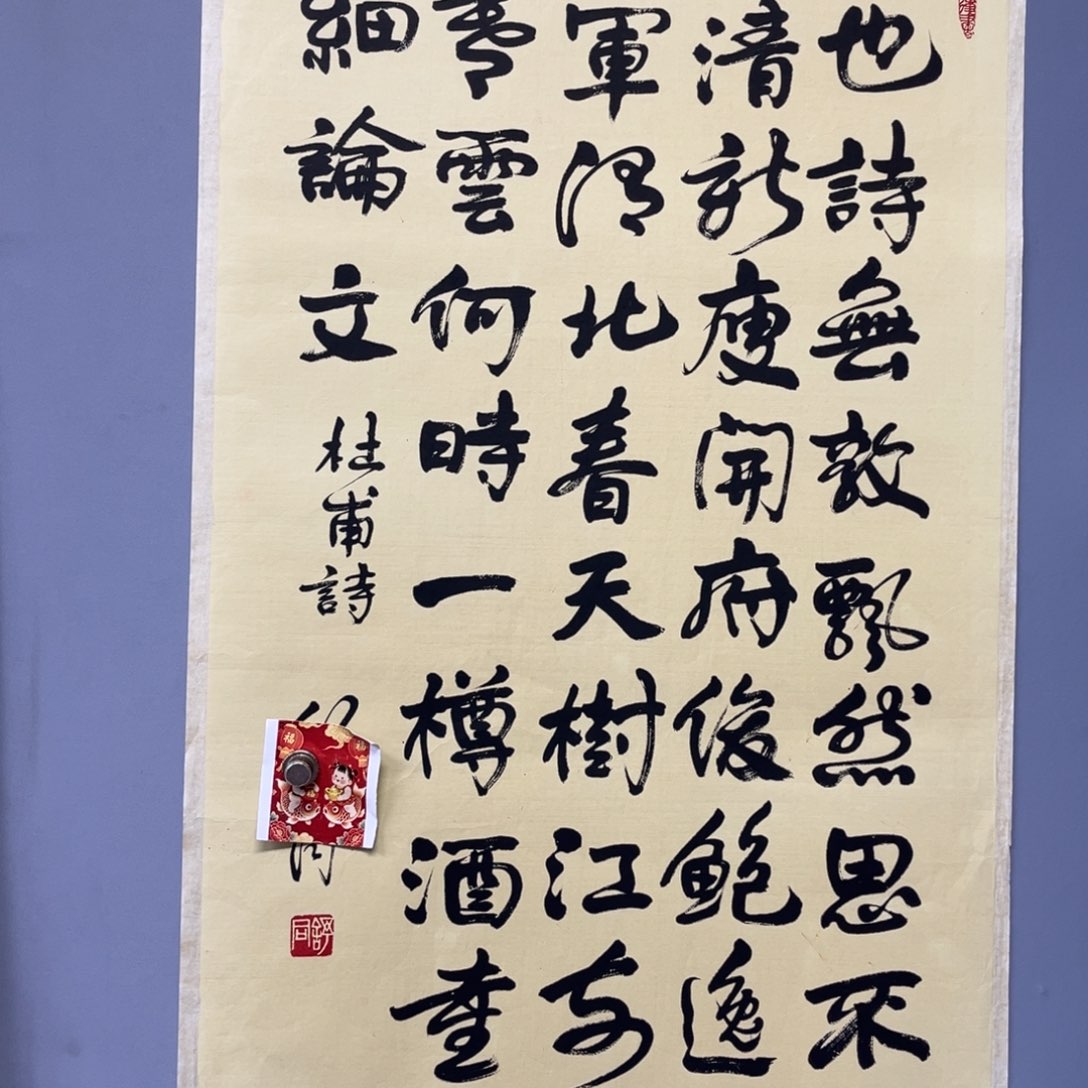 也詩無敵飄然思不
清新庾開府俊鮑逸
軍渭北春天樹江東
暮雲何時一樽酒重
細論文
杜甫詩
同
舒同
福